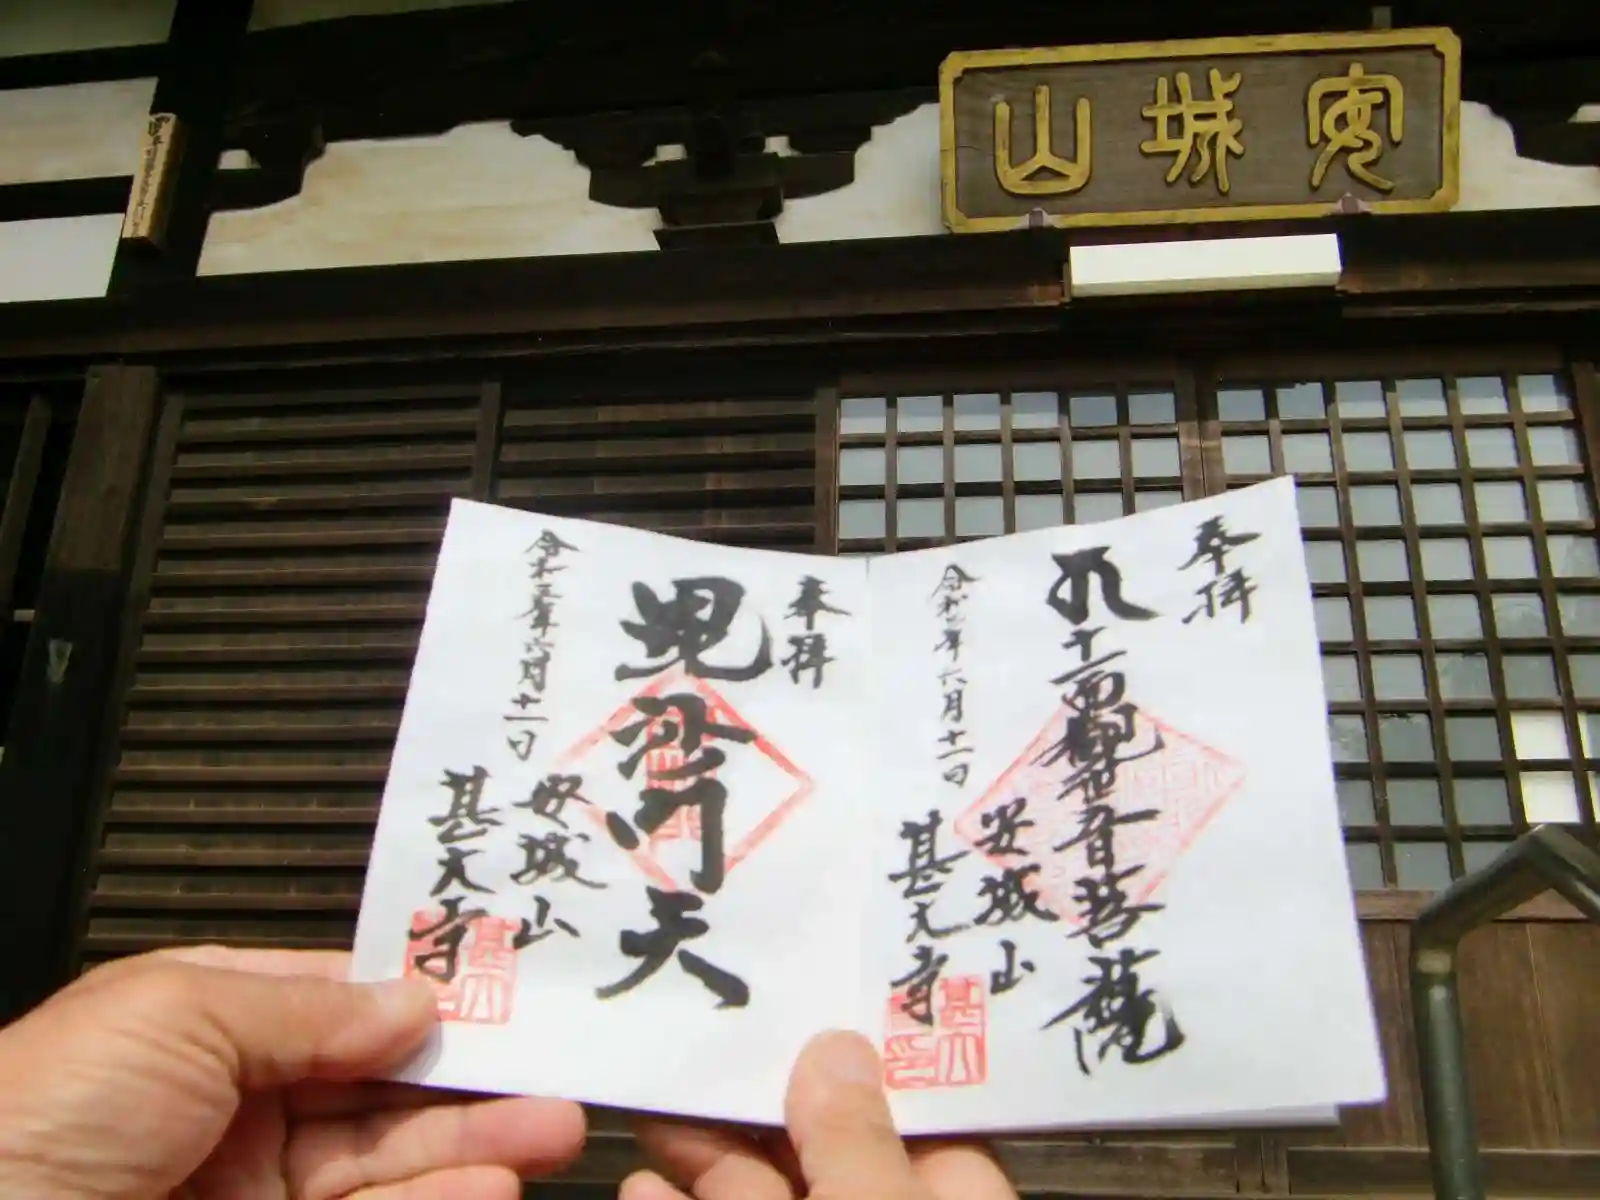 安城山
奉拝
十一面観世音菩薩
安城山
甚大寺
六月十一日
奉拝
毘沙門天
安城山
甚大寺
令和五年六月十一日